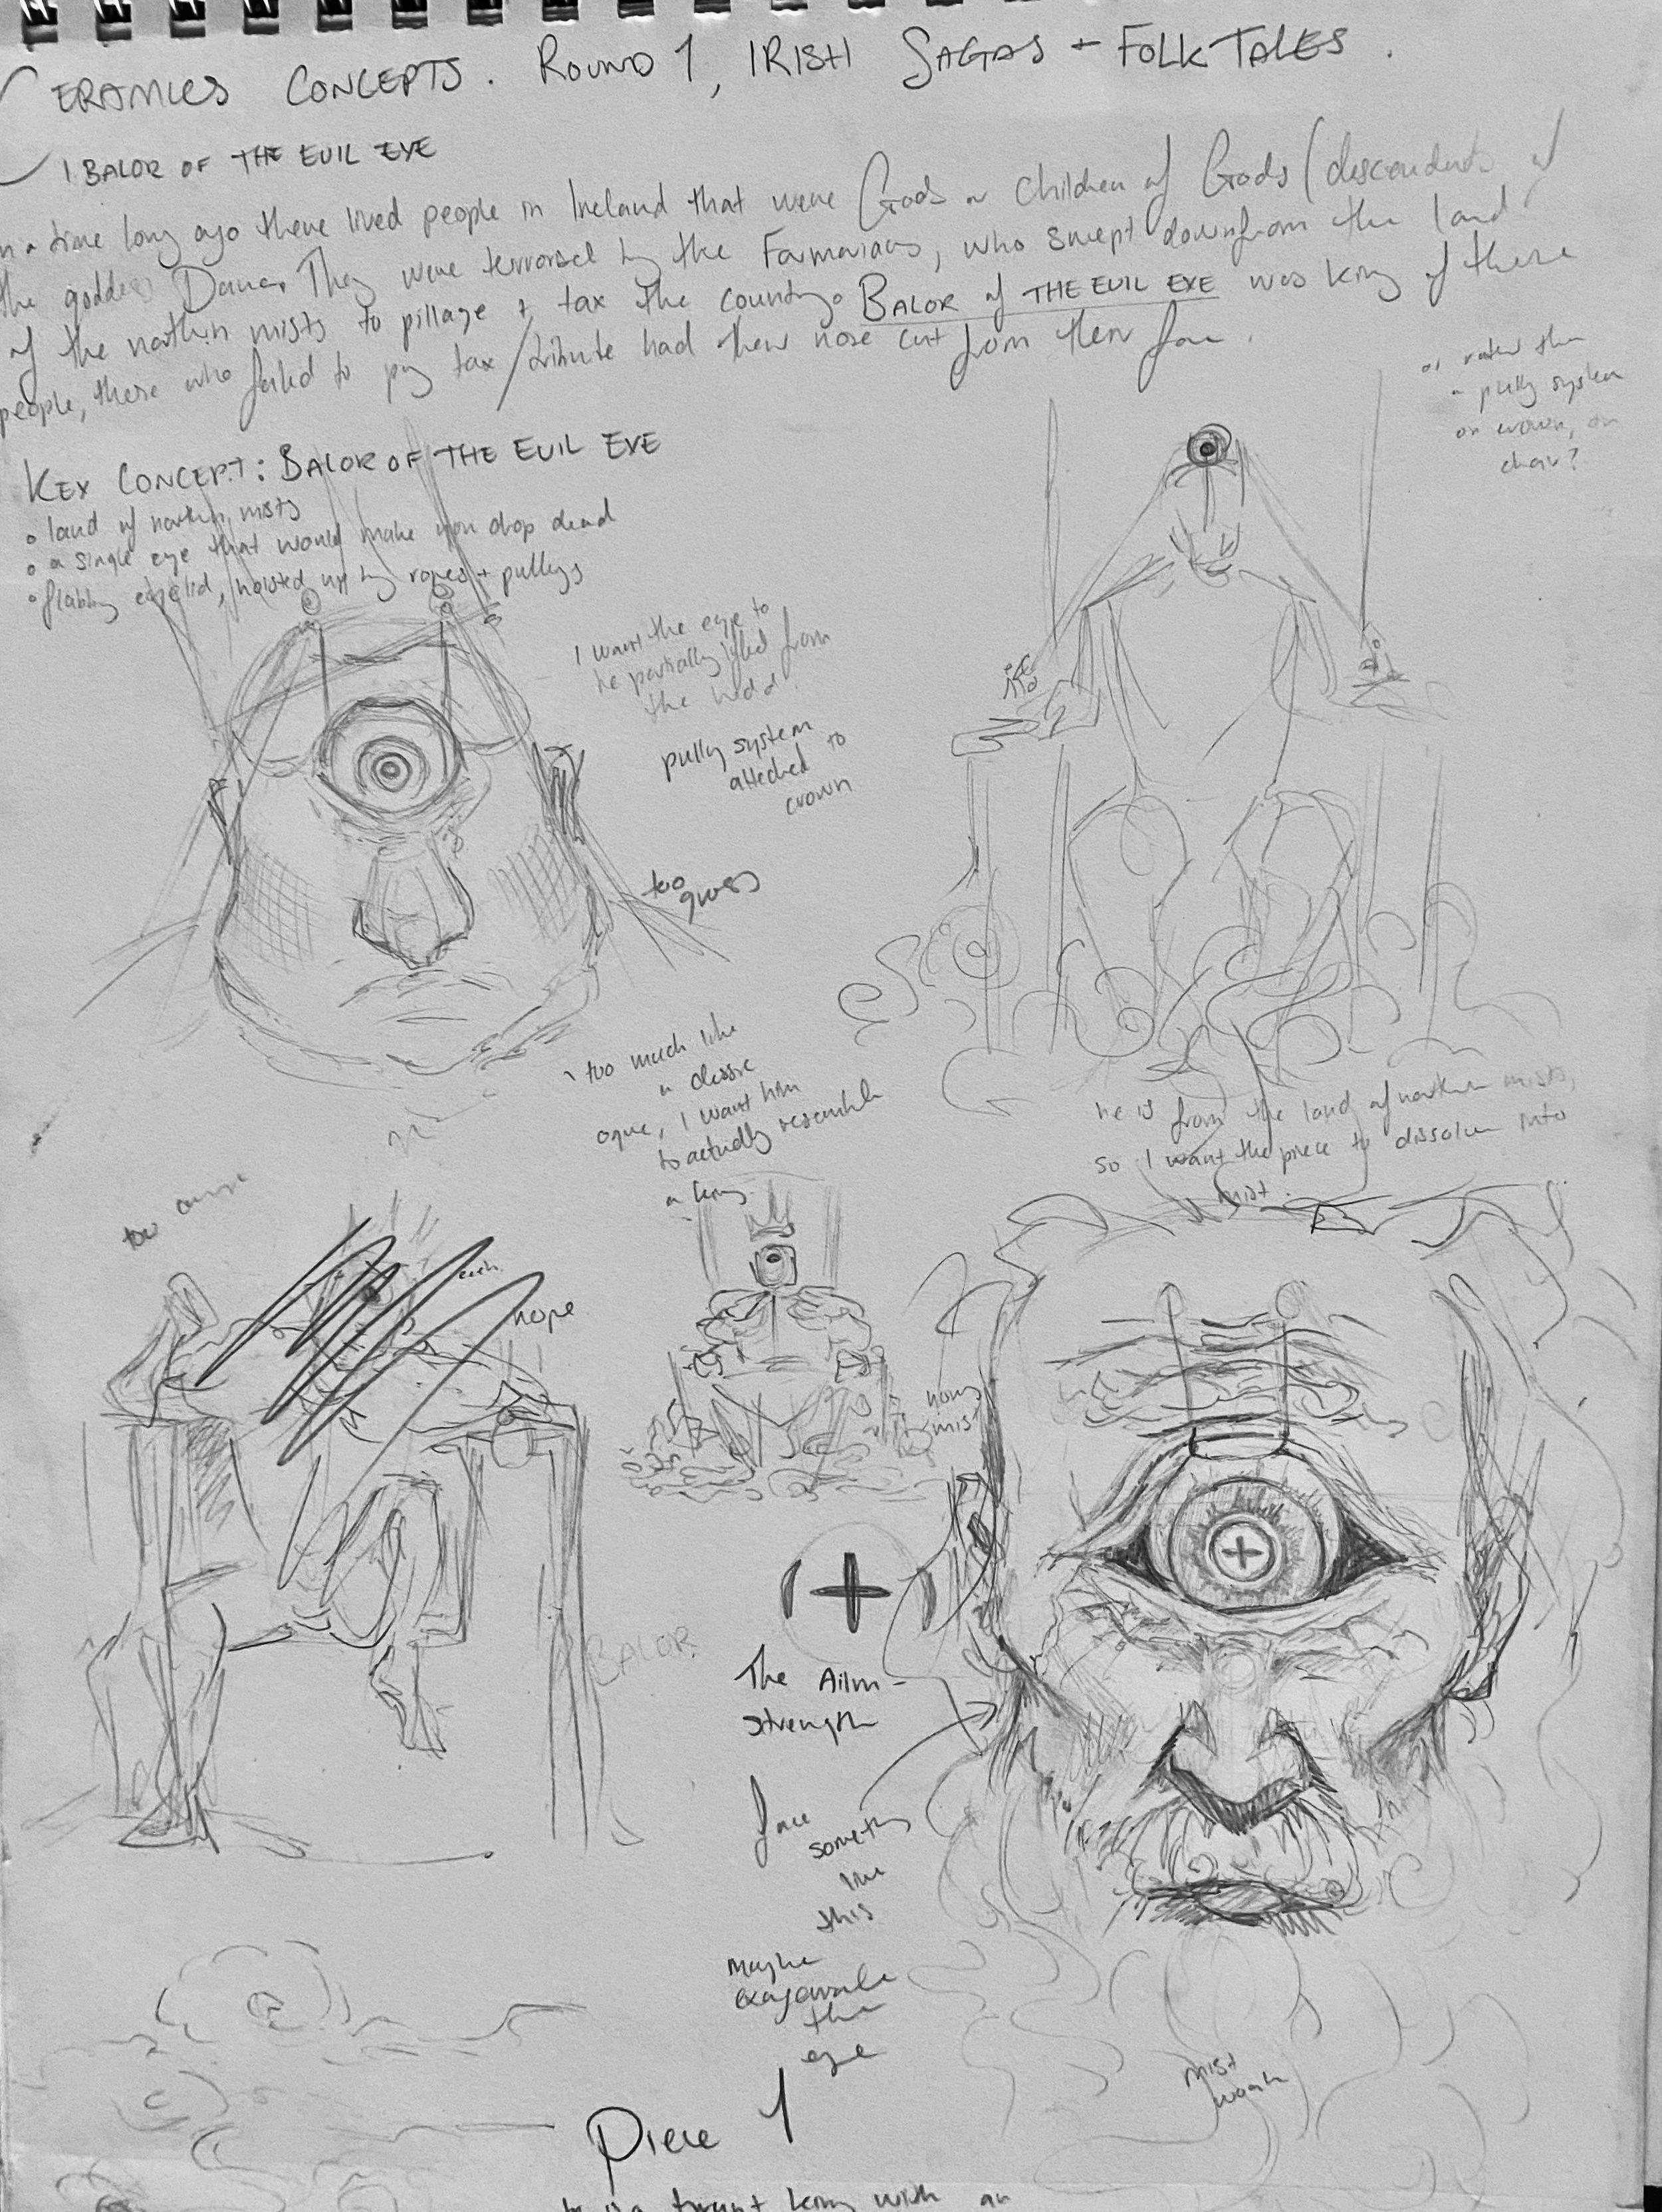 CERAMICS CONCEPTS. ROUND 1, IRISH SAGAS + FOLKTALES.
1 BALOR OF THE EVIL EYE
In a time long ago there lived people in Ireland that were Gods or Children of Gods (descendents of
the goddess Dana. They were terrorsed by the Formorians, who swept down from the land
of the northern mists to pillage + tax the country. BALOR of THE EVIL EYE was king of these
people, those who failed to pay tax/tribute had their nose cut from their face.
or rather than
a pully system
on crown, on
chair?
KEY CONCEPT: BALOR OF THE EVIL EYE
• land of northern mists
• a single eye that would make you drop dead
• flabby eyelid, hoisted up by ropes + pullys
I want the eye to
be partially lifted from
the head.
pully system
attached to
crown
too
gross
too much like
a classic
ogre, I want him
to actually resemble
a king
he is from the land of northern mists,
so I want the piece to dissolve into
mist.
too
nope
mist
BALOR
The Ailm -
strength
face
something
like
this
Maybe
exagerate
the
eye
mist
Piece 1
tyrant king with an